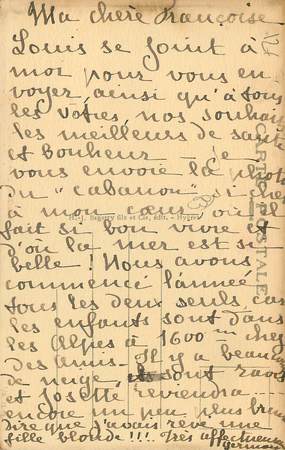 Ma chère Françoise
Louis se joint à
moi pour vous en-
voyer, ainsi qu'à tous
les vôtres, nos souhaits
les meilleurs de santé
et bonheur - Je
vous envoie la photo
du "cabanon" si cher
à mon cœur où il
fait si bon vivre et
d'où la mer est si
belle ! Nous avons
commencé l'année
tous les deux seuls car
les enfants sont dans
les Alpes à 1600 m chez
des amis - Il y a beaucoup
de neige, ils sont ravis
et Josette reviendra
encore un peu plus brune
dire que j'avais rêvé une
fille blonde !!! Très affectueusement
Germaine
CARTE POSTALE
Bagarry fils et Cie, édit. - Hyères